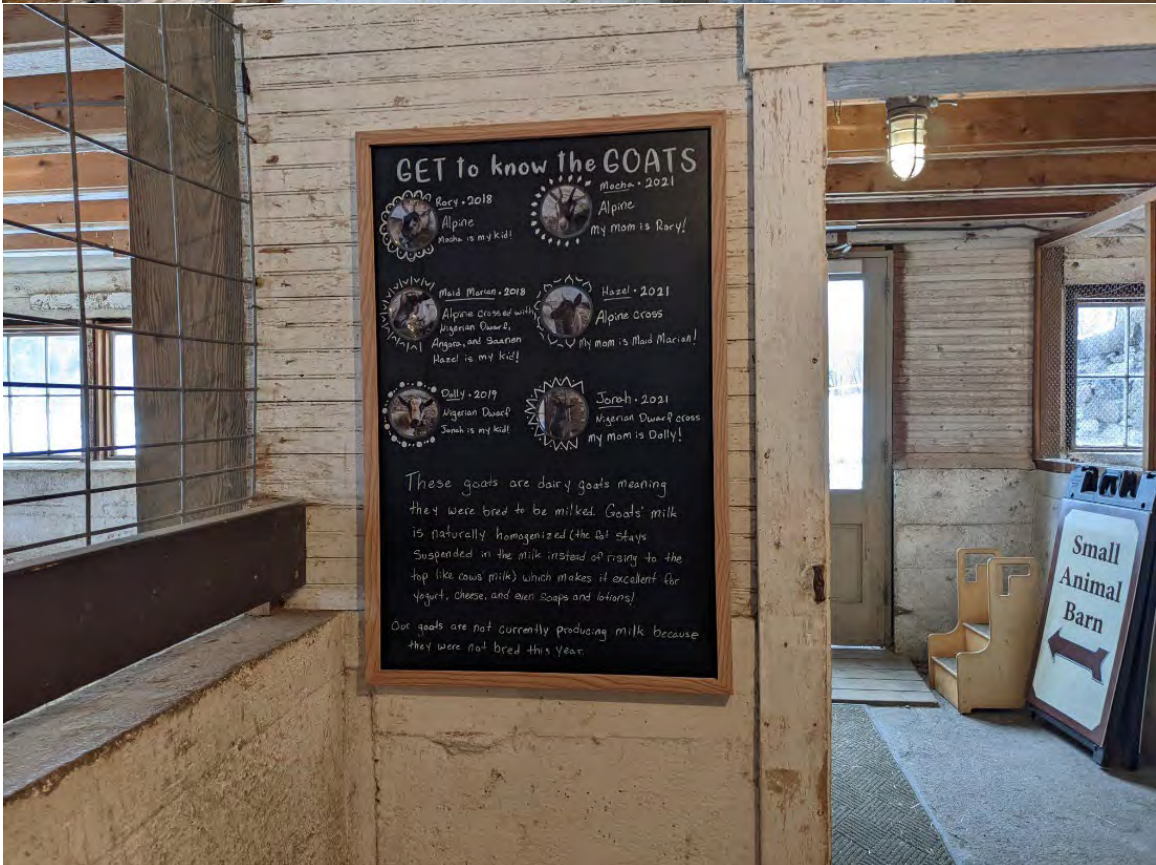 GET to know the GOATS
Rory • 2018
Alpine
Mocha is my kid!
Mocha • 2021
Alpine
My mom is Rory!
Maid Marian • 2018
Alpine crossed with
Nigerian Dwarf,
Angora, and Saanen
Hazel is my kid!
Hazel • 2021
Alpine cross
My mom is Maid Marian!
Dolly • 2019
Nigerian Dwarf
Jonah is my kid!
Jonah • 2021
Nigerian Dwarf cross
my mom is Dolly!
These goats are dairy goats meaning
they were bred to be milked. Goats' milk
is naturally homogenized (the fat stays
suspended in the milk instead of rising to the
top like cows milk) which makes it excellent for
yogurt, cheese, and even soaps and lotions!
Our goats are not currently producing milk because
they were not bred this year.
Small
Animal
Barn